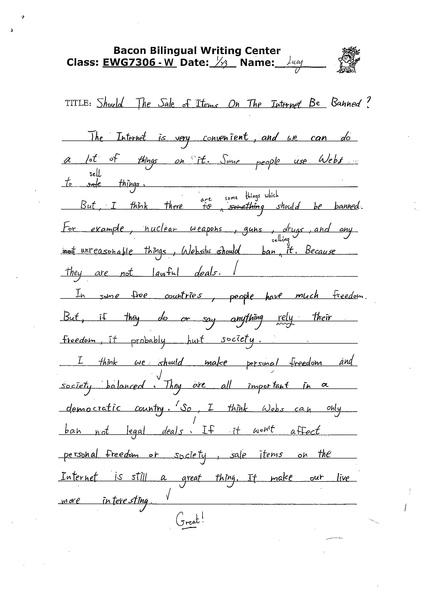 Bacon Bilingual Writing Center
Class: EWG7306-W Date: 1/13 Name: Lucy
TITLE: Should The Sale of Items On The Internet Be Banned?
The Internet is very convenient, and we can do
a lot of things on it. Some people use Webs
sell
to sale things.
are some things which
But, I think there is something should be banned.
For example, nuclear weapons, guns, drugs, and any
selling
most unreasonable things, Websits should ban it. Because
they are not lawful deals.
In some free countries, people have much freedom.
But, if they do or say anything rely their
freedom, it probably hurt society.
I think we should make personal freedom and
society balanced. They are all important in a
democratic country. So, I think Webs can only
ban not legal deals. If it won't affect
personal freedom or society, sale items on the
Internet is still a great thing. It make our live
more interesting.
Great!